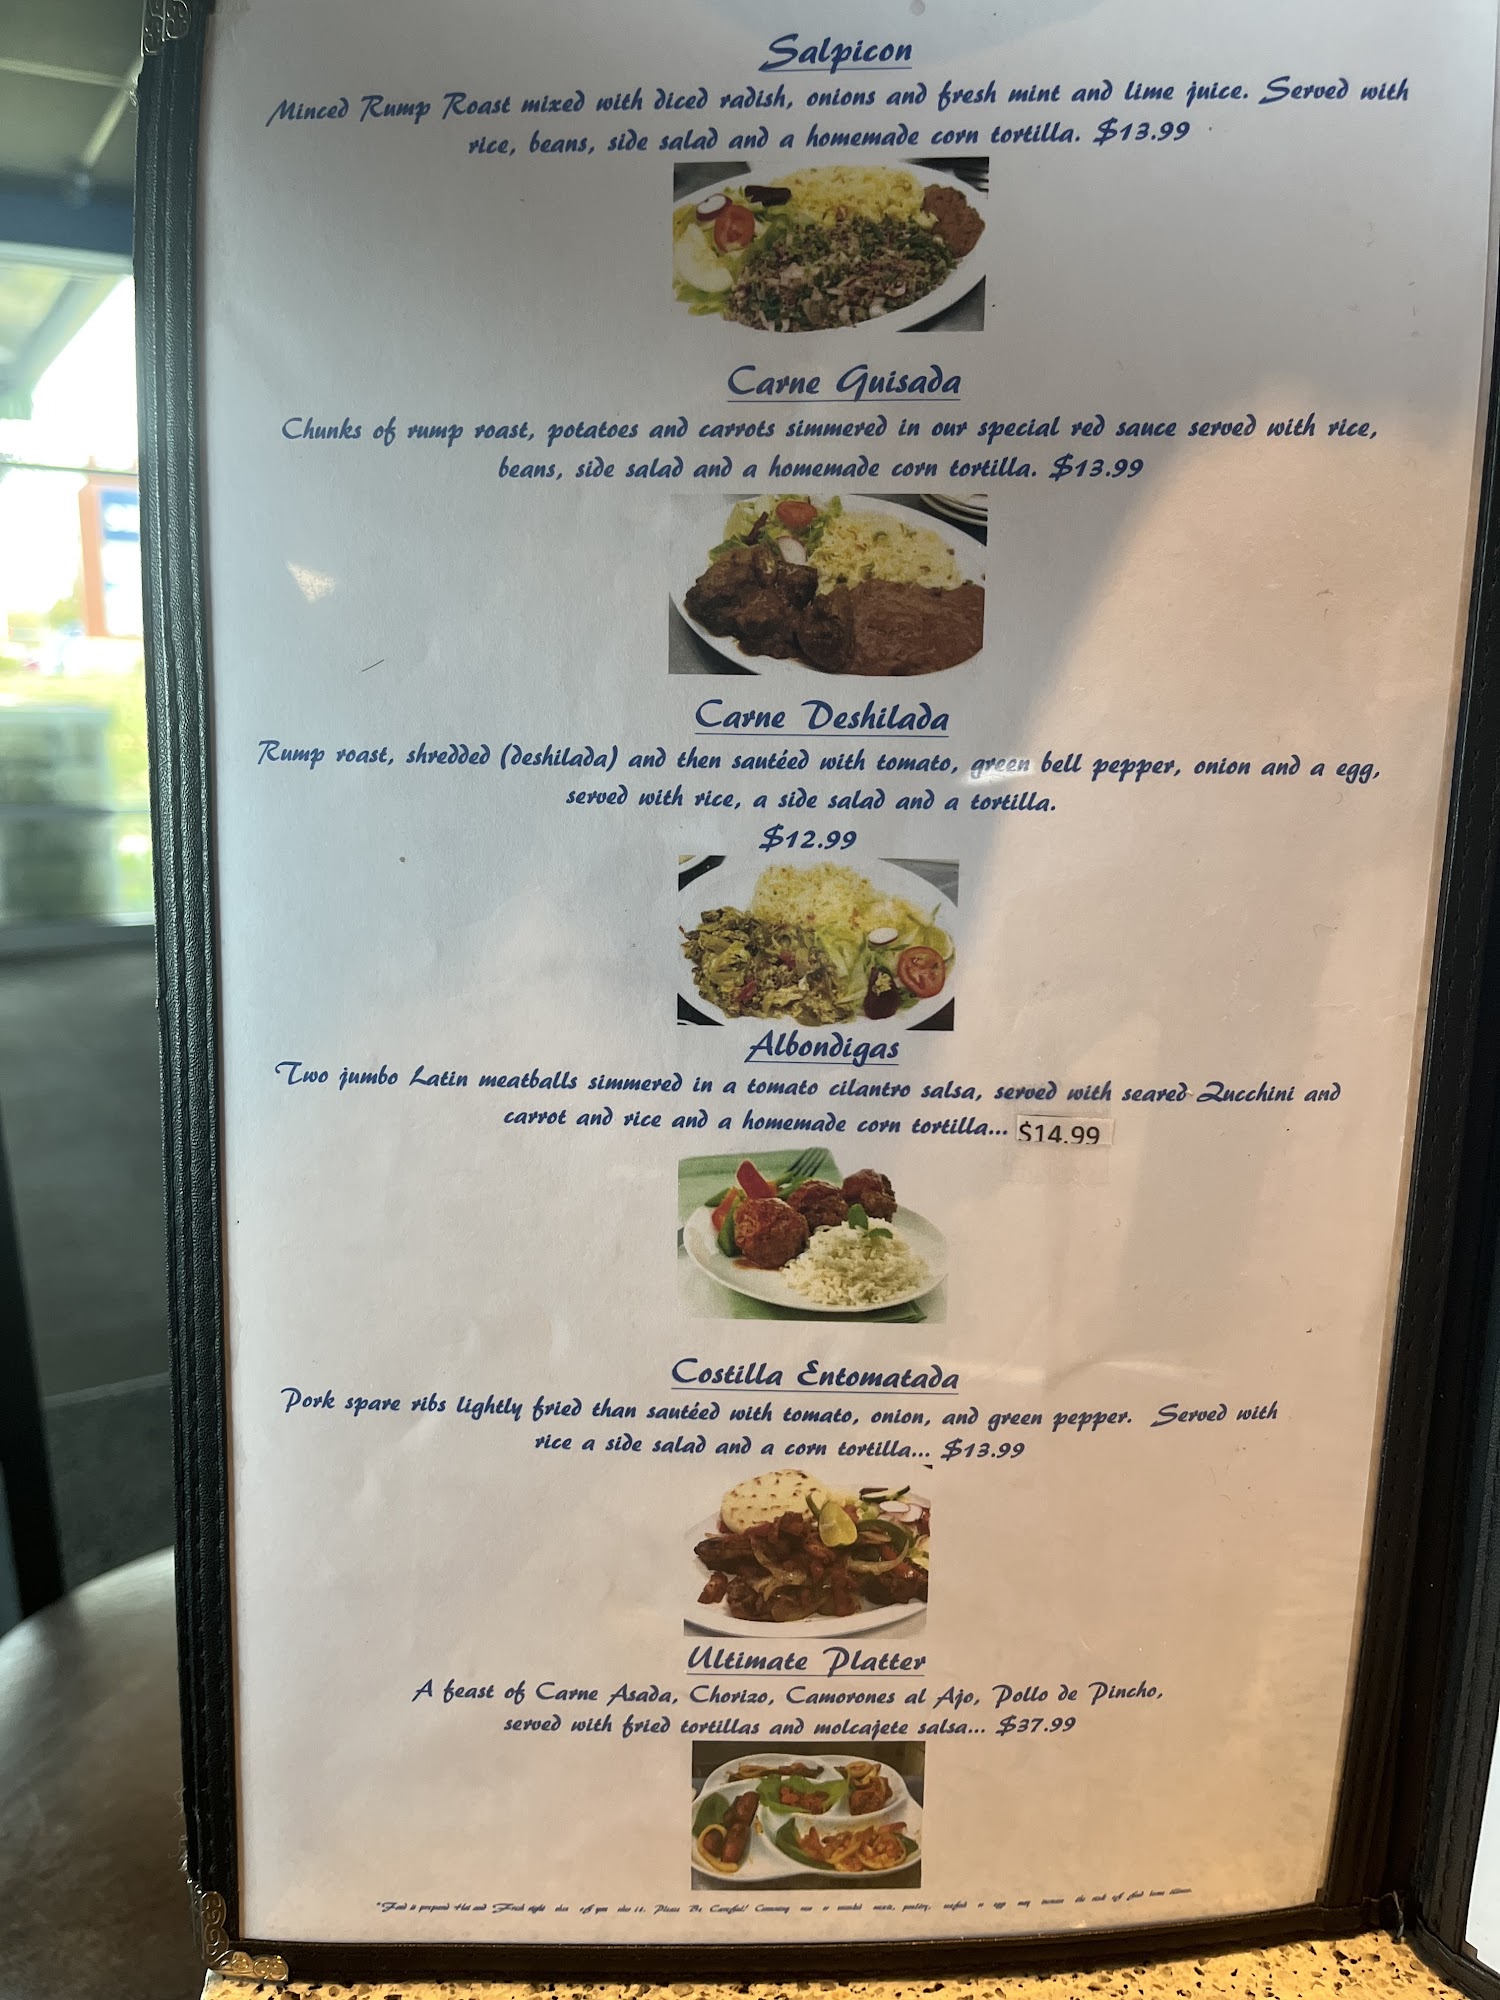 Salpicon
Minced Rump Roast mixed with diced radish, onions and fresh mint and lime juice. Served with
rice, beans, side salad and a homemade corn tortilla. $13.99
Carne Guisada
Chunks of rump roast, potatoes and carrots simmered in our special red sauce served with rice,
beans, side salad and a homemade corn tortilla. $13.99
Carne Deshilada
Rump roast, shredded (deshilada) and then sautéed with tomato, green bell pepper, onion and a egg,
served with rice, a side salad and a tortilla.
$12.99
Albondigas
Two jumbo Latin meatballs simmered in a tomato cilantro salsa, served with seared Zucchini and
carrot and rice and a homemade corn tortilla... $14.99
Costilla Entomatada
Pork spare ribs lightly fried than sautéed with tomato, onion, and green pepper. Served with
rice a side salad and a corn tortilla... $13.99
Ultimate Platter
A feast of Carne Asada, Chorizo, Camorones al Ajo, Pollo de Pincho,
served with fried tortillas and molcajete salsa... $37.99
*Food is prepared Hot and Fresh right Please Be Careful!